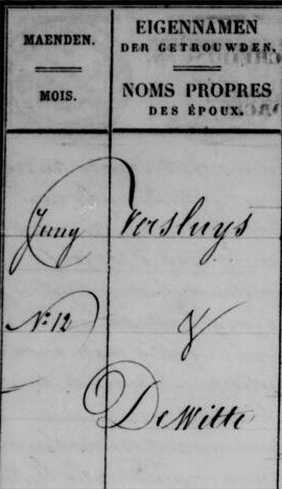 MAENDEN.
MOIS.
EIGENNAMEN
DER GETROUWDEN.
NOMS PROPRES
DES ÉPOUX.
Juny Versluys
N: 12 &
DeWitte